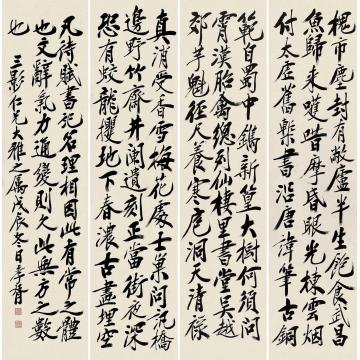 槐市塵封有敝廬半生飽食武昌
魚歸來嘆喈摩昏眼光棟雲烟
付太虛舊槧書沿唐諱筆古銅
範自蜀中鐫新篁大樹何須問
霄漢胎禽總列仙棲里書堂吴越
郊芋魁徑尺養寒庖洞天清祿
真消受香雪梅花處士巢問訊橋
邊野竹齋井闌遺刻正當街夜深
恐有蛟龍攫地下春濃古畫埋空
凡詩賦書記名理相因此有常之體
也文辭氣力通變則久此無方之數
也 三影仁兄大雅之屬戊辰冬日孝胥